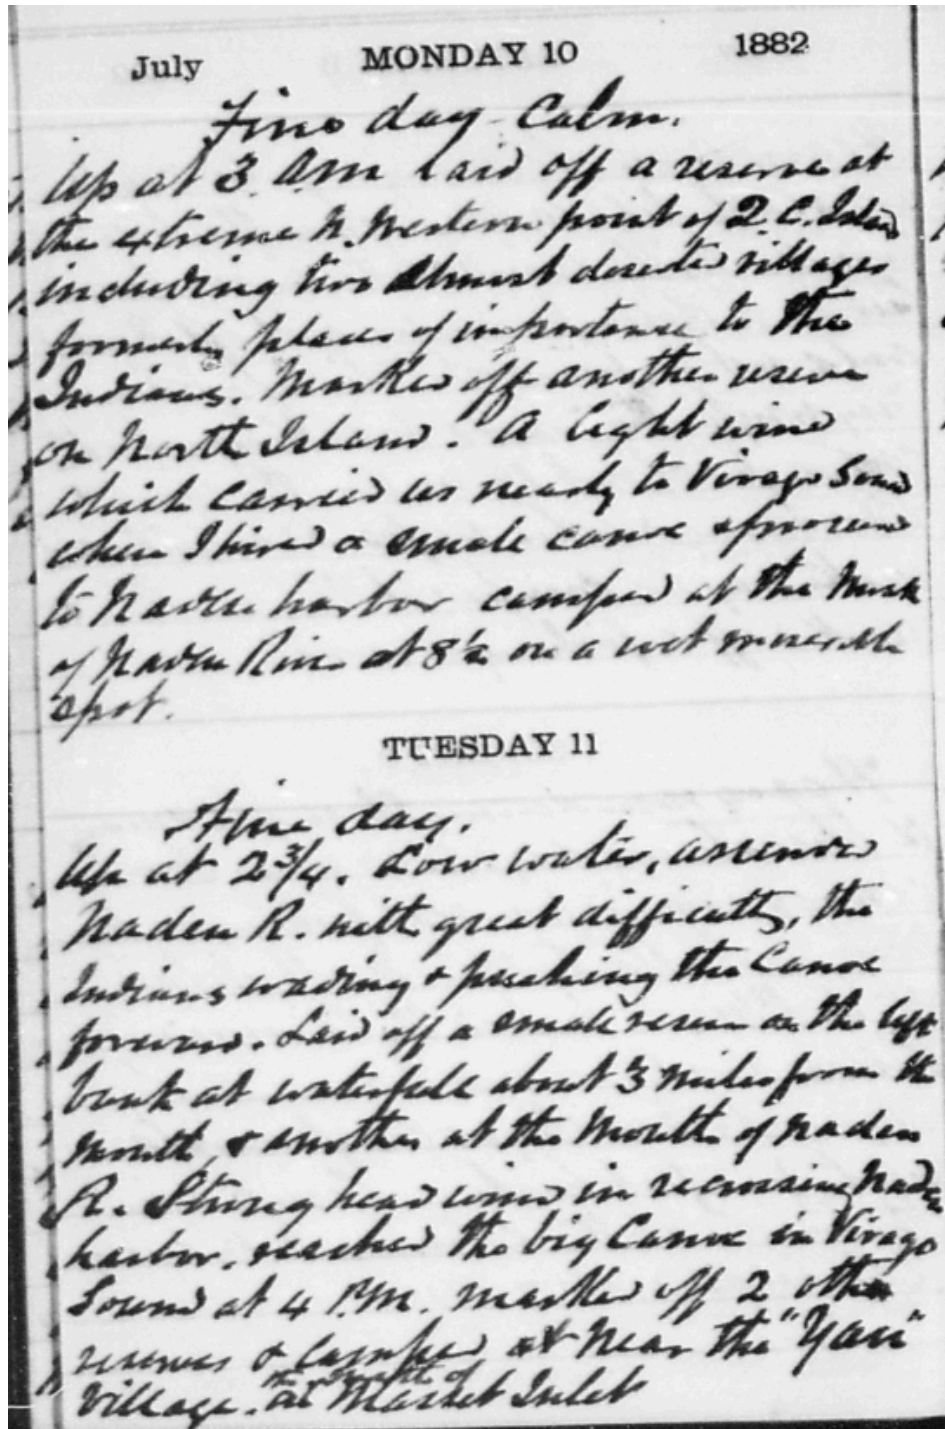 July MONDAY 10 1882
Fine day - Calm.
Up at 3. A.M laid off a reserve at
the extreme N. Western point of Q. C. Island
including two almost deserted villages
formerly places of importance to the
Indians. Marked off another reserve
on North Island. A light wind
which carried us nearly to Virago Sound
when I hired a small canoe & proceeded
to Naden harbor camped at the mouth
of Naden River at 8½ on a wet miserable
spot.
TUESDAY 11
Fine day.
Up at 2¾. Low water, ascended
Naden R. with great difficulty, the
Indians wading & pushing the Canoe
forward. Laid off a small reserve on the left
bank at waterfall about 3 miles from the
mouth, & another at the mouth of Naden
R. Strong head wind in recrossing Naden
harbor. reached the big Canoe in Virago
Sound at 4 P.M. marked off 2 other
reserves & camped at near the "Yan"
village. at the mouth of Masset Inlet